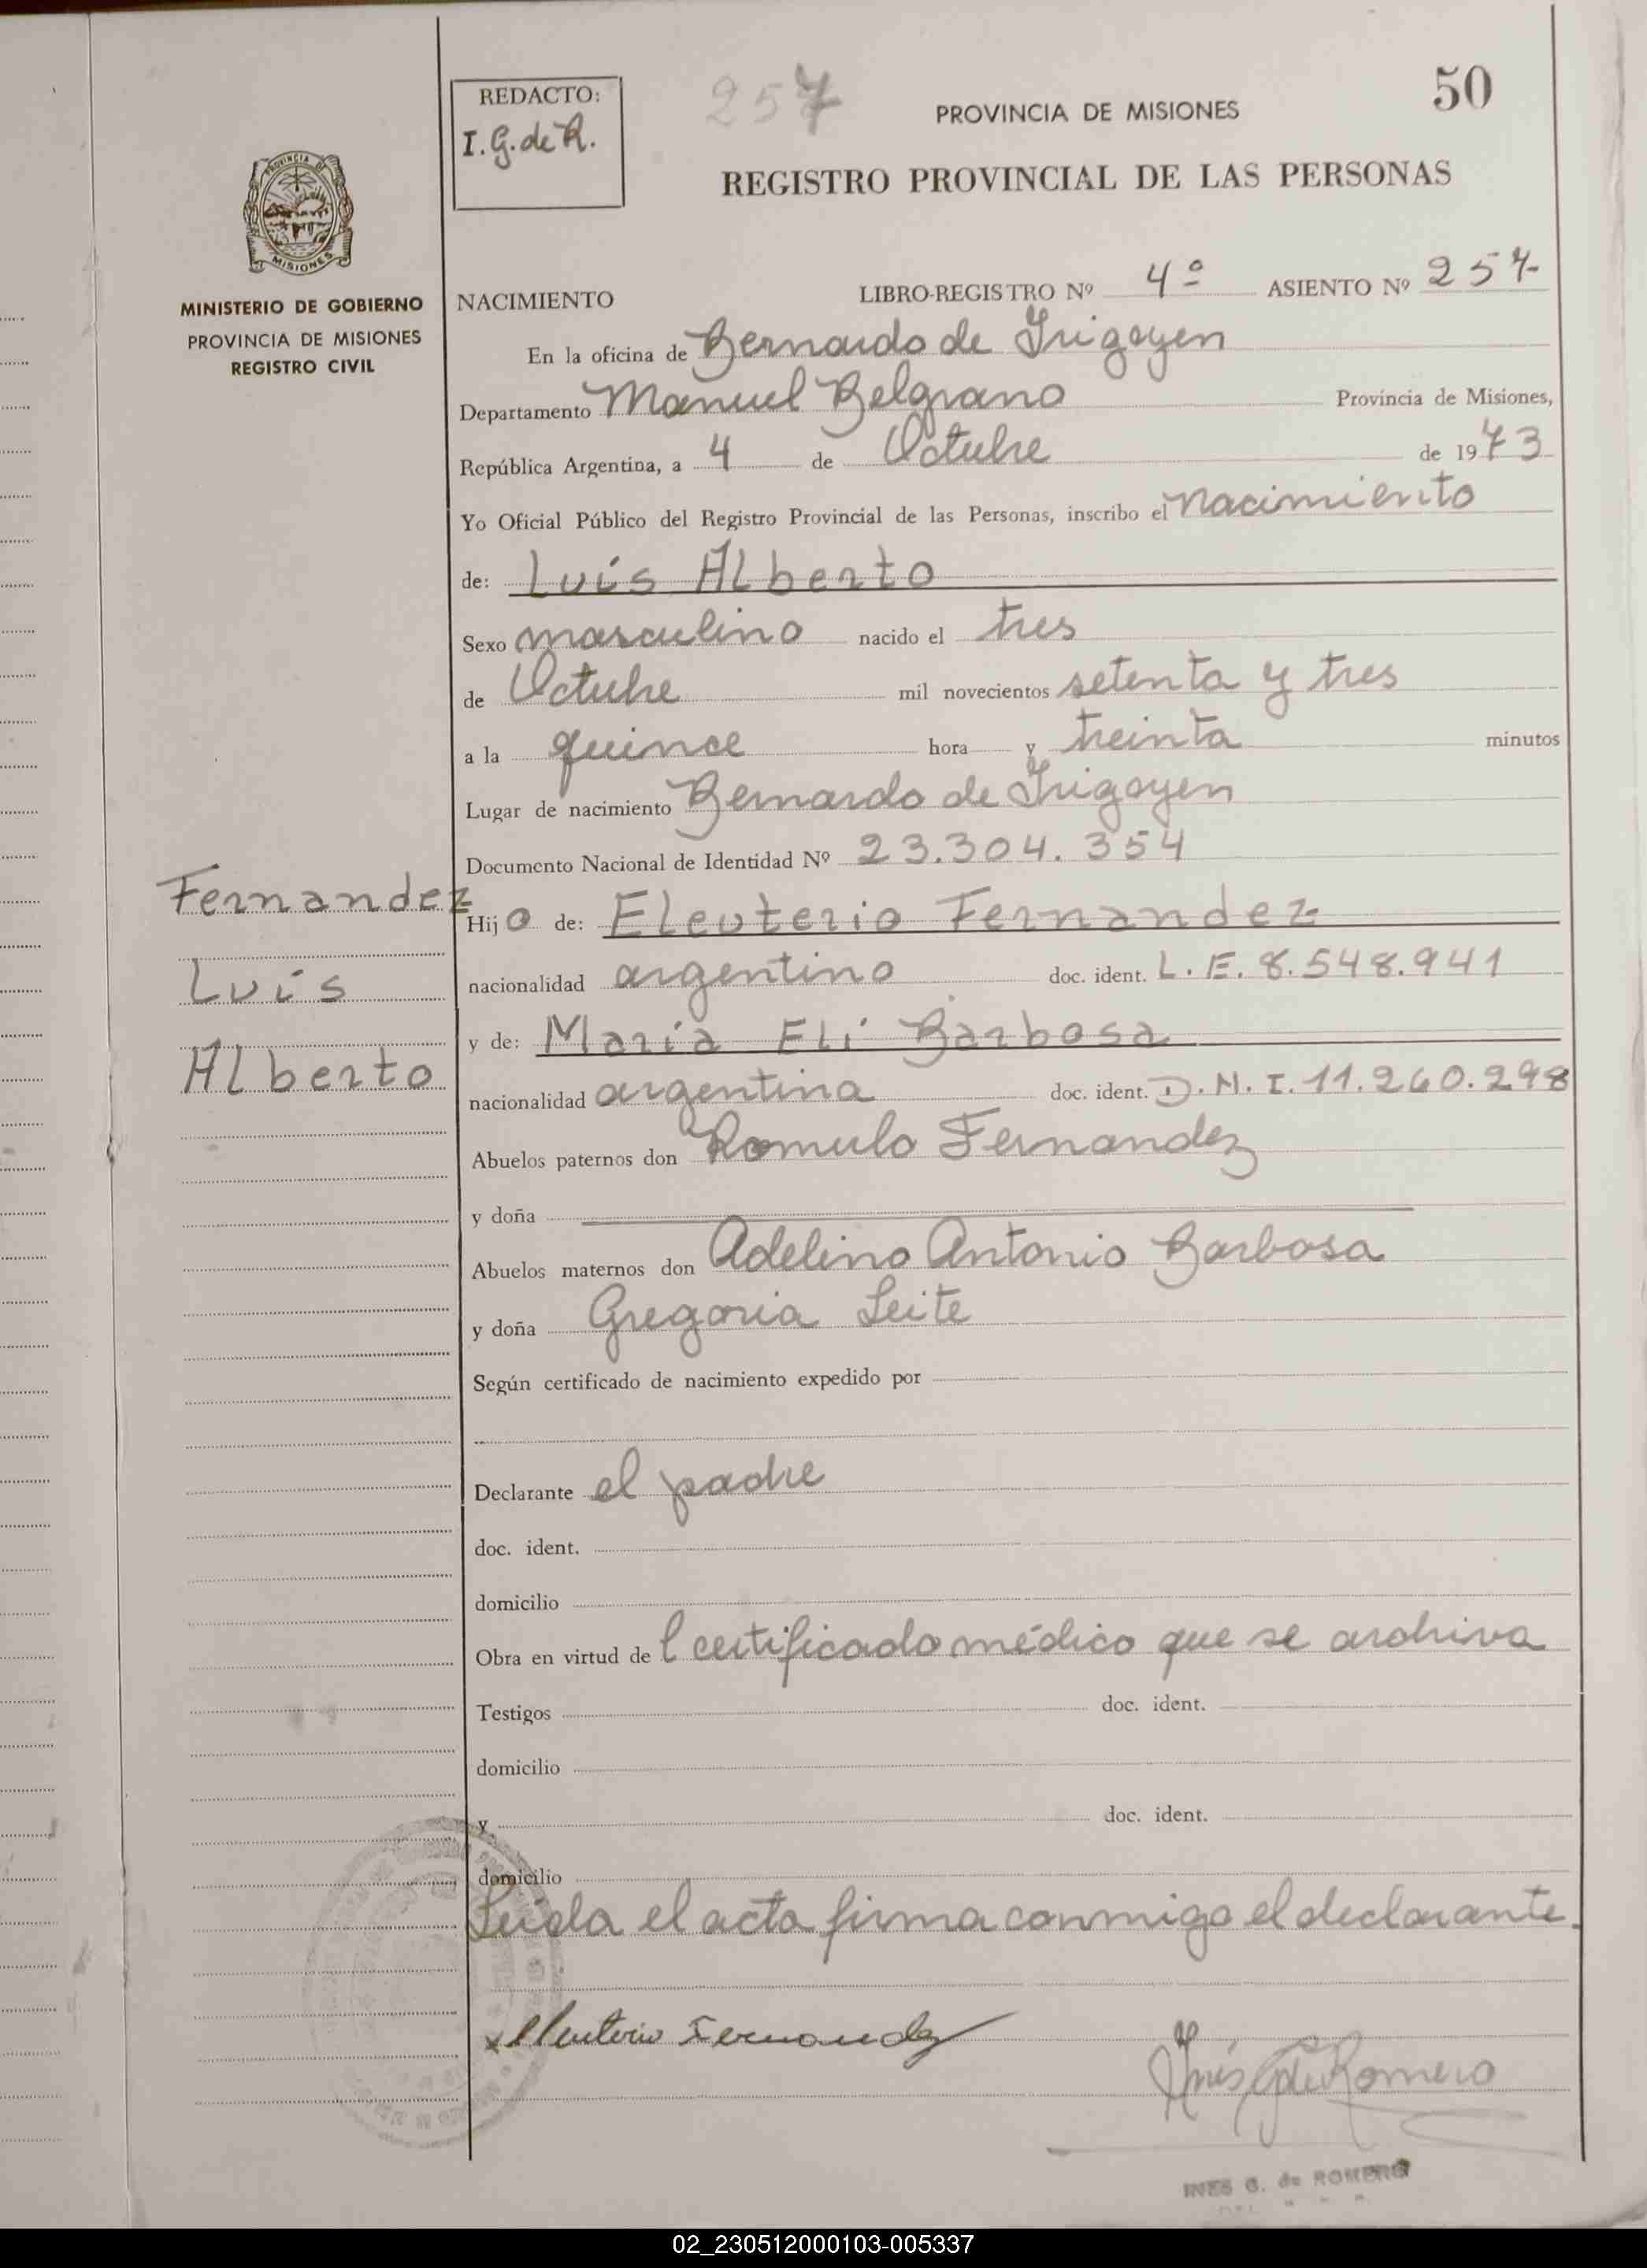 REDACTO:
I. G. de R.
257
PROVINCIA DE MISIONES
50
REGISTRO PROVINCIAL DE LAS PERSONAS
PROVINCIA DE
MISIONES
MINISTERIO DE GOBIERNO
PROVINCIA DE MISIONES
REGISTRO CIVIL
NACIMIENTO LIBRO-REGISTRO Nº 4º ASIENTO Nº 257
En la oficina de Bernardo de Irigoyen
Departamento Manuel Belgrano Provincia de Misiones,
República Argentina, a 4 de Octubre de 1973
Yo Oficial Público del Registro Provincial de las Personas, inscribo el nacimiento
de: Luis Alberto
Sexo masculino nacido el tres
de Octubre mil novecientos setenta y tres
a la quince hora y treinta minutos
Lugar de nacimiento Bernardo de Irigoyen
Documento Nacional de Identidad Nº 23.304.354
Fernandez
Luis
Alberto
Hijo de: Eleuterio Fernandez
nacionalidad argentino doc. ident. L. E. 8.548.941
y de: Maria Eli Barbosa
nacionalidad argentina doc. ident. D. N. I. 11.260.298
Abuelos paternos don Romulo Fernandez
y doña
Abuelos maternos don Adelino Antonio Barbosa
y doña Gregoria Leite
Según certificado de nacimiento expedido por
Declarante el padre
doc. ident.
domicilio
Obra en virtud del certificado médico que se archiva
Testigos doc. ident.
domicilio
y doc. ident.
domicilio
Leida el acta firma conmigo el declarante.
x Eleuterio Fernandez
Inés G de Romero
INES G. de ROMERO
02_230512000103-005337